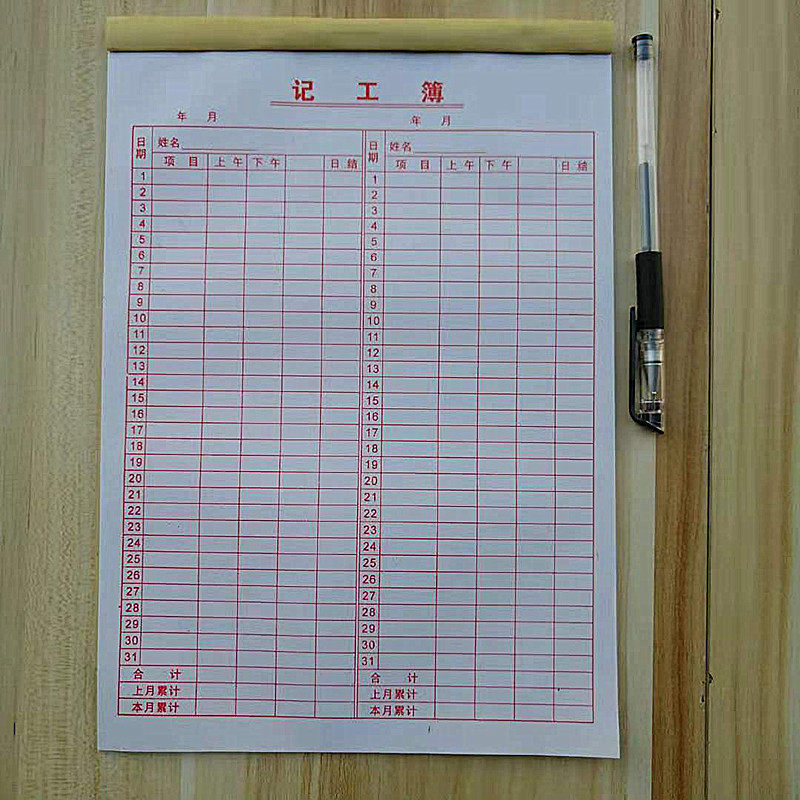 记 工 簿
年 月 年 月
日期 姓名 日期 姓名
项 目 上 午 下 午 日 结 项 目 上 午 下 午 日 结
1 1
2 2
3 3
4 4
5 5
6 6
7 7
8 8
9 9
10 10
11 11
12 12
13 13
14 14
15 15
16 16
17 17
18 18
19 19
20 20
21 21
22 22
23 23
24 24
25 25
26 26
27 27
28 28
29 29
30 30
31 31
合 计 合 计
上月累计 上月累计
本月累计 本月累计